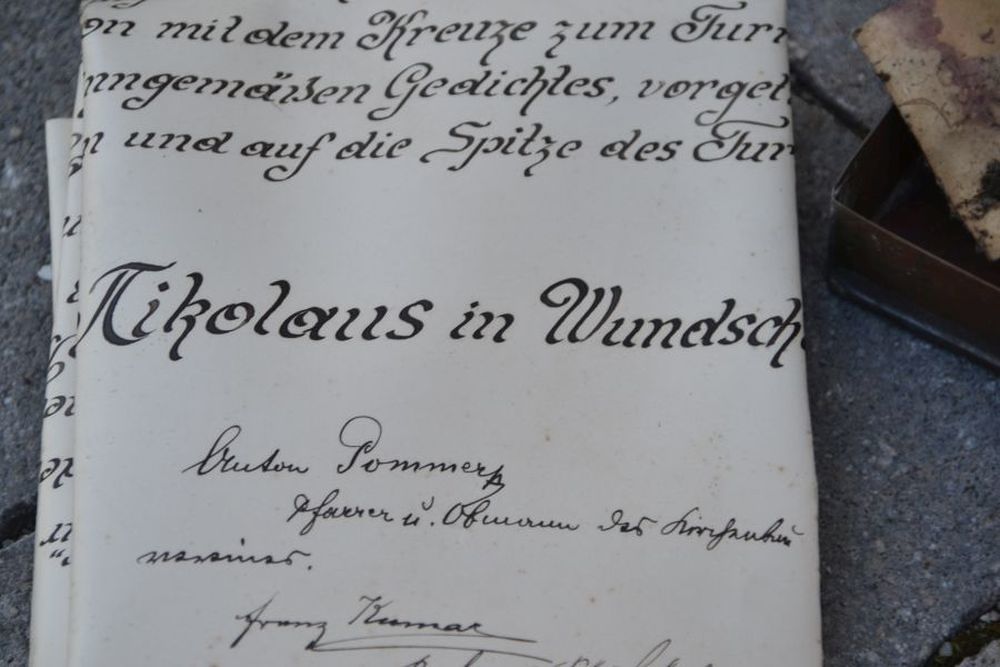 mit dem Kreuze zum Turm
nngemäßen Gedichtes, vorget
und auf die Spitze des Tur
Nikolaus in Wundsch
Anton Pommer
Pfarrer u. Obmann des Kirchenbau
vereines.
Franz Kumar